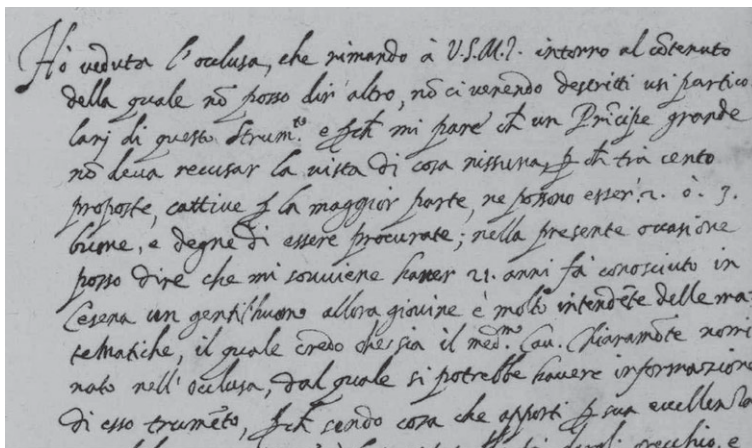 Hò veduta l'occlusa, che rimando à V.S.Ill. intorno al cõtenuto
della quale nõ posso dir' altro, nõ ci venendo descritti usi partico
larj di questo strum.to e p ch mi pare ch un Prĩcipe grande
nõ deva recusar la vista di cosa nissuna, p ch trà cento
proposte, cattive p la maggior parte, ne possono esser' 2. ò 3.
buone, e degne di essere procurate; nella presente occasione
posso dire che mi souviene haver 21. anni fà conosciuto in
Cesena un gentil'huomo allora giovine è molto intendẽte delle ma
tematiche, il quale credo che sia il med.mo Cav. Chiaramõte nomi
nato nell'occlusa, dal quale si potrebbe havere informazione
di esso strumẽto, p ch sendo cosa che apporti p sua eccellenza
orecchio, e